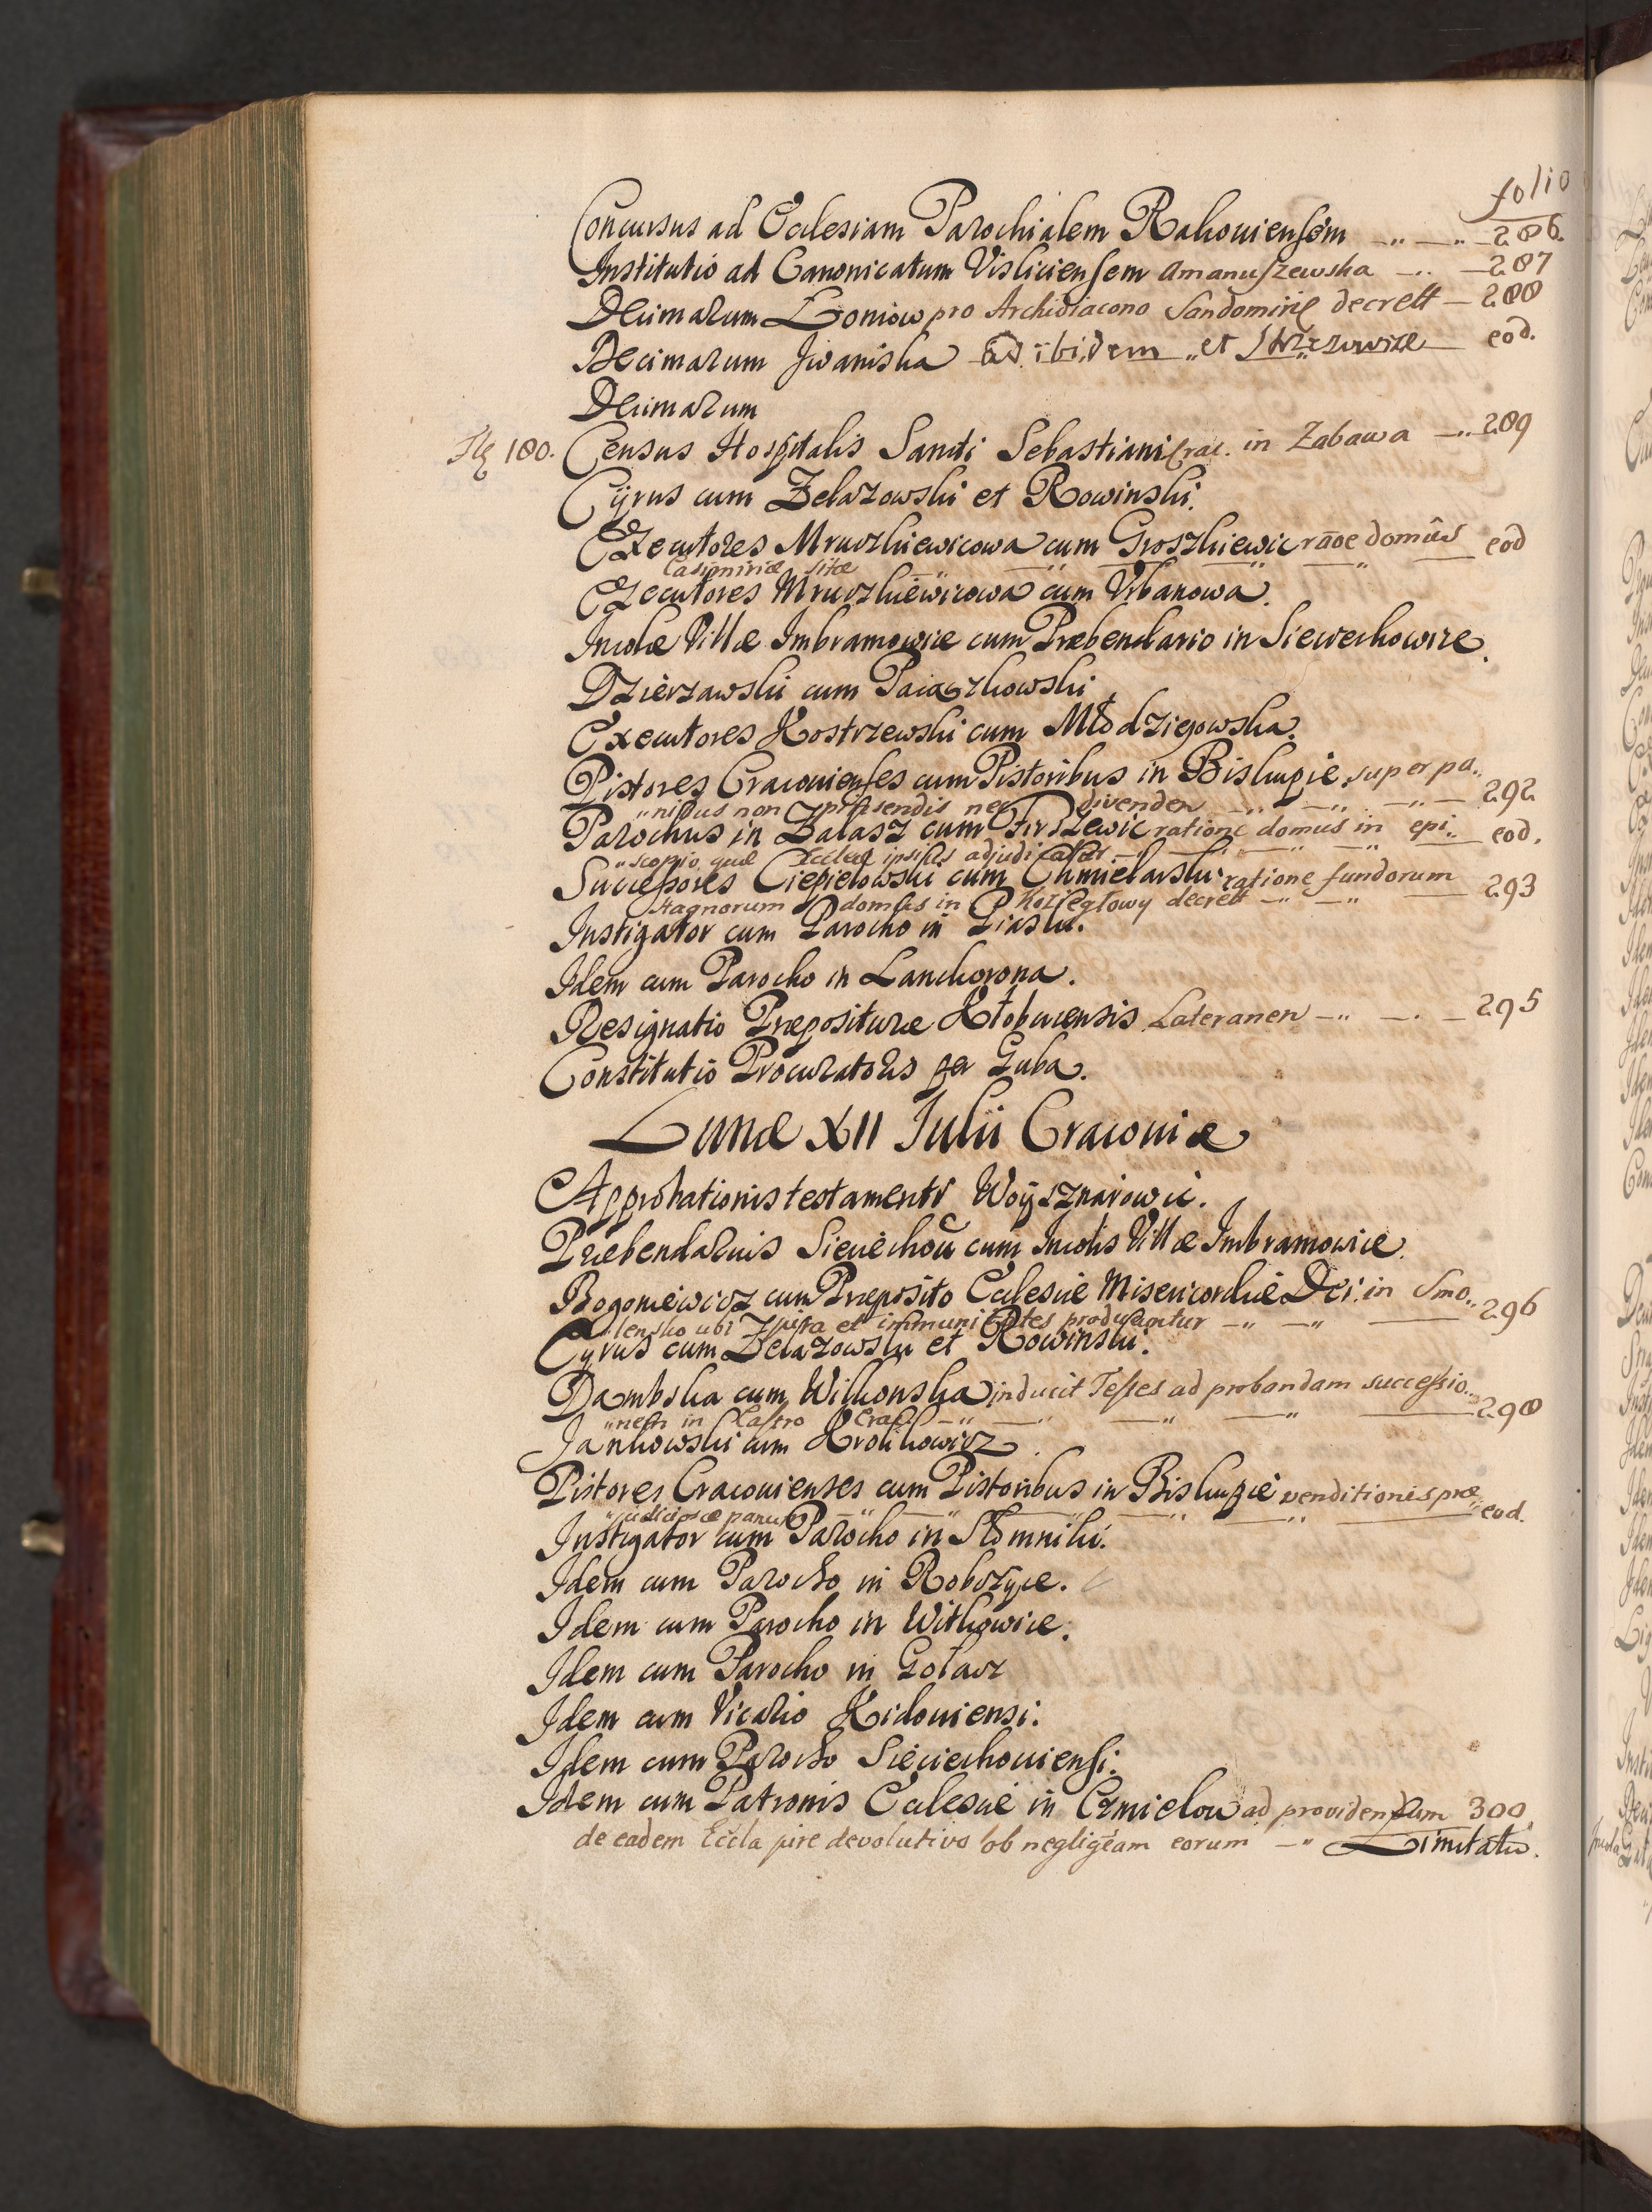 folio
Concursus ad Ecclesiam Parochialem Rakouiensem 286.
Institutio ad Canonicatum Visliciensem Amanuszewska 287
Decimarum Loniow pro Archidiacono Sandomirie decrett 288
Decimarum Jwaniska ibidem et eod.
Decimarum
Flg 180. Census Hospitalis Sancti Sebastiani Crac. in Zabawa 289
Cÿrus cum Zelazowski et Rowinski.
Executores Mruczkiewicowa cum Groszkiewic rãoe domûs eod
Casimiriæ sitæ
Executores Mruczkiewicowa cum Vrbanowa.
Incolæ Villæ Imbramowice cum Præbendario in Siewechowice.
Dzierzawski cum Paiączkowski
Executores Kostrzewski cum Młodziegowska.
Pistores Cracouienses cum Pistoribus in Biskupie super pa„
„nibus non pinsendis nec divenden 292
Parochus in Załasz cum Firszlewic ratione domus in epi„ eod.
„scopio quæ Ecclæ ipsius adjudicatur
Successores Ciepielowski cum Chmielarski ratione fundorum
stagnorum domus in Koziegłowy decrett 293
Instigator cum Parocho in Piaski.
Idem cum Parocho in Lanckorona.
Resignatio Præpositure Kłobucensis Lateranen 295
Constitutio Procuratoris per Guba.
Lunæ XII Julii Cracouiæ
Approbationis testamenti Woysznarowic.
Præbendarius Sieciechou cum Incolis Villæ Imbramowice.
Bogoniewicz cum Præposito Ecclesiæ Misericordiæ Dei in Smo„
„lensko ubi jura et immunitates producuntur 296
Cyrus cum Zelazowski et Rowinski.
Dambska cum Wilkonska inducit Testes ad probandam successio„
„nem in Castro Crac 298
Jankowski cum Krolikowicz.
Pistores Cracouienses cum Pistoribus in Biskupie venditionis præ„
„judiciosæ panum eod.
Instigator cum Parocho in Słomniki.
Idem cum Parocho in Robczyce.
Idem cum Parocho in Witkowice.
Idem cum Parocho in Gołacz
Idem cum Vicario Kidouiensi.
Idem cum Parocho Sieciechouiensi.
Idem cum Patronis Ecclesiæ in Czmielow ad providendum 300
de eadem Eccla jure devolutivo ob negligẽam eorum Limitatio.